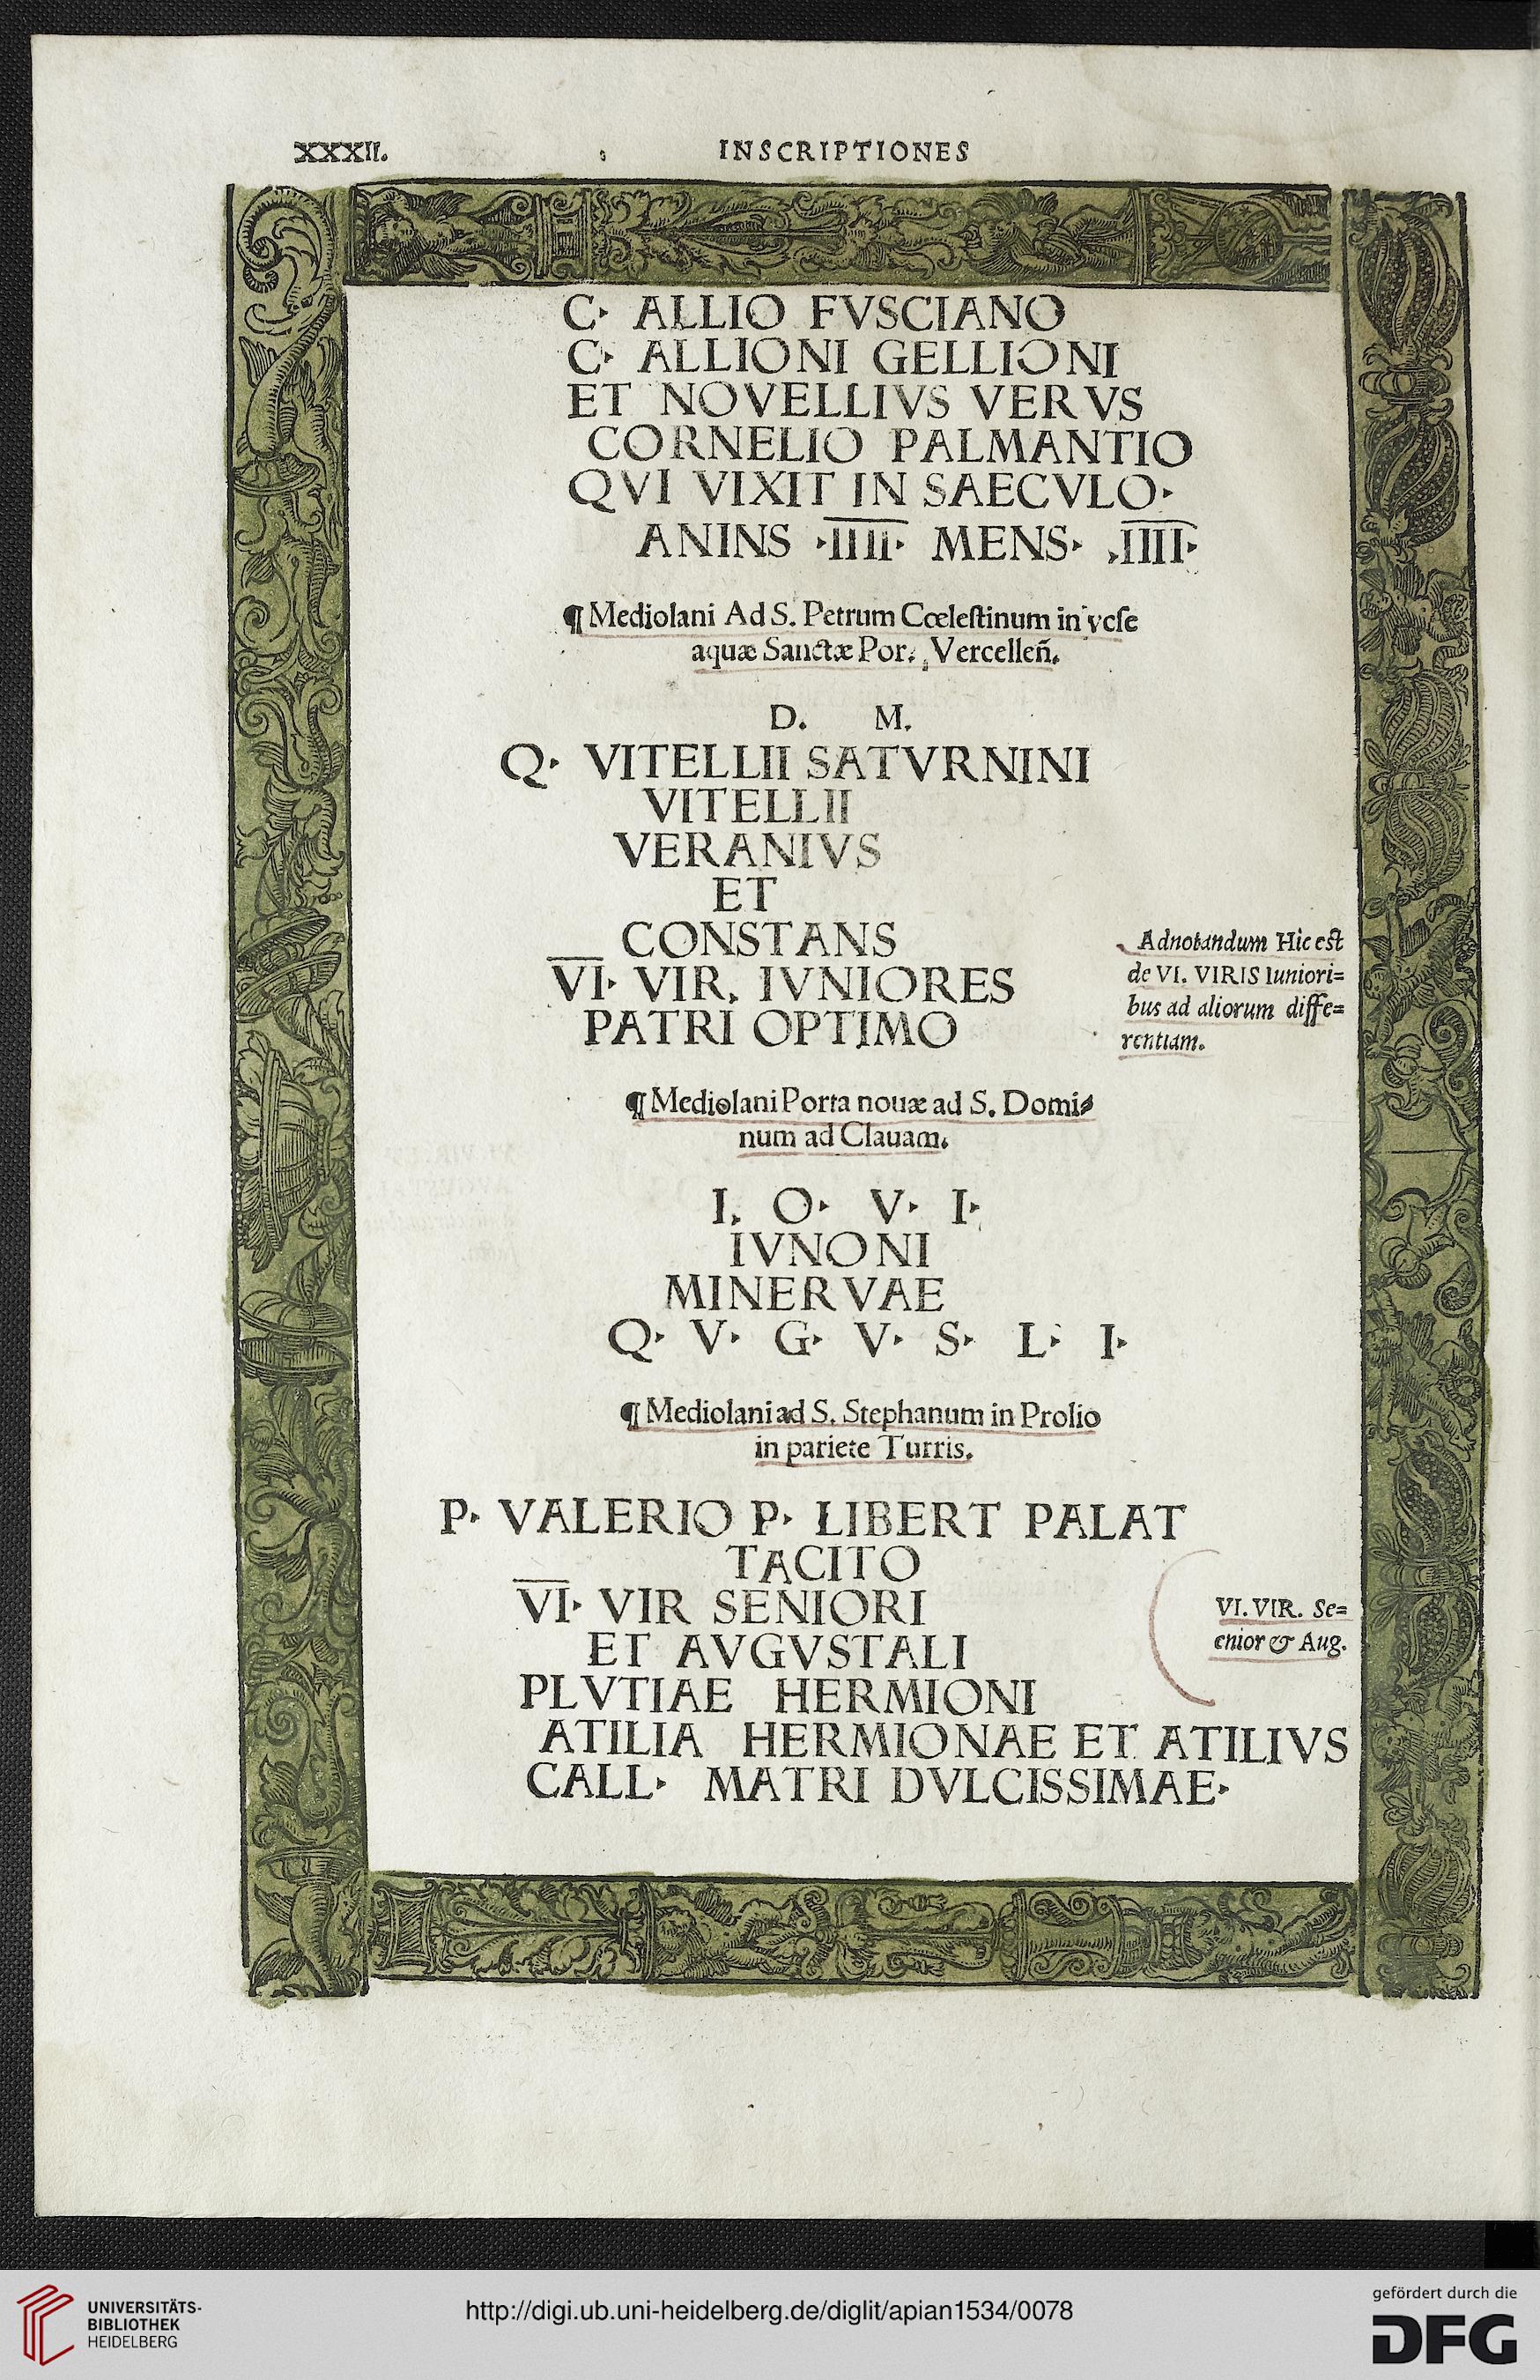 XXXII.
INSCRIPTIONES
C· ALLIO FVSCIANO
C· ALLIONI GELLIONI
ET NOVELLIVS VERVS
CORNELIO PALMANTIO
QVI VIXIT IN SAECVLO·
ANINS ·IIII· MENS· ·IIII·
¶ Mediolani Ad S. Petrum Cœleſtinum in vcſe
aquæ Sanctæ Por. Vercelleñ.
D. M.
Q· VITELLII SATVRNINI
VITELLII
VERANIVS
ET
CONSTANS
VI· VIR. IVNIORES
PATRI OPTIMO
Adnotandum Hic eſt
de VI. VIRIS Iuniori=
bus ad aliorum diffe=
rentiam.
¶ Mediolani Porta nouæ ad S. Domi=
num ad Clauam.
I. O· V· I·
IVNONI
MINERVAE
Q· V· G· V· S· L· I·
¶ Mediolani ad S. Stephanum in Prolio
in pariete Turris.
P· VALERIO P· LIBERT PALAT
TACITO
VI· VIR SENIORI
ET AVGVSTALI
VI. VIR. Se=
enior & Aug.
PLVTIAE HERMIONI
ATILIA HERMIONAE ET ATILIVS
CALL· MATRI DVLCISSIMAE·
UNIVERSITÄTS-
BIBLIOTHEK
HEIDELBERG
http://digi.ub.uni-heidelberg.de/diglit/apian1534/0078
gefördert durch die
DFG